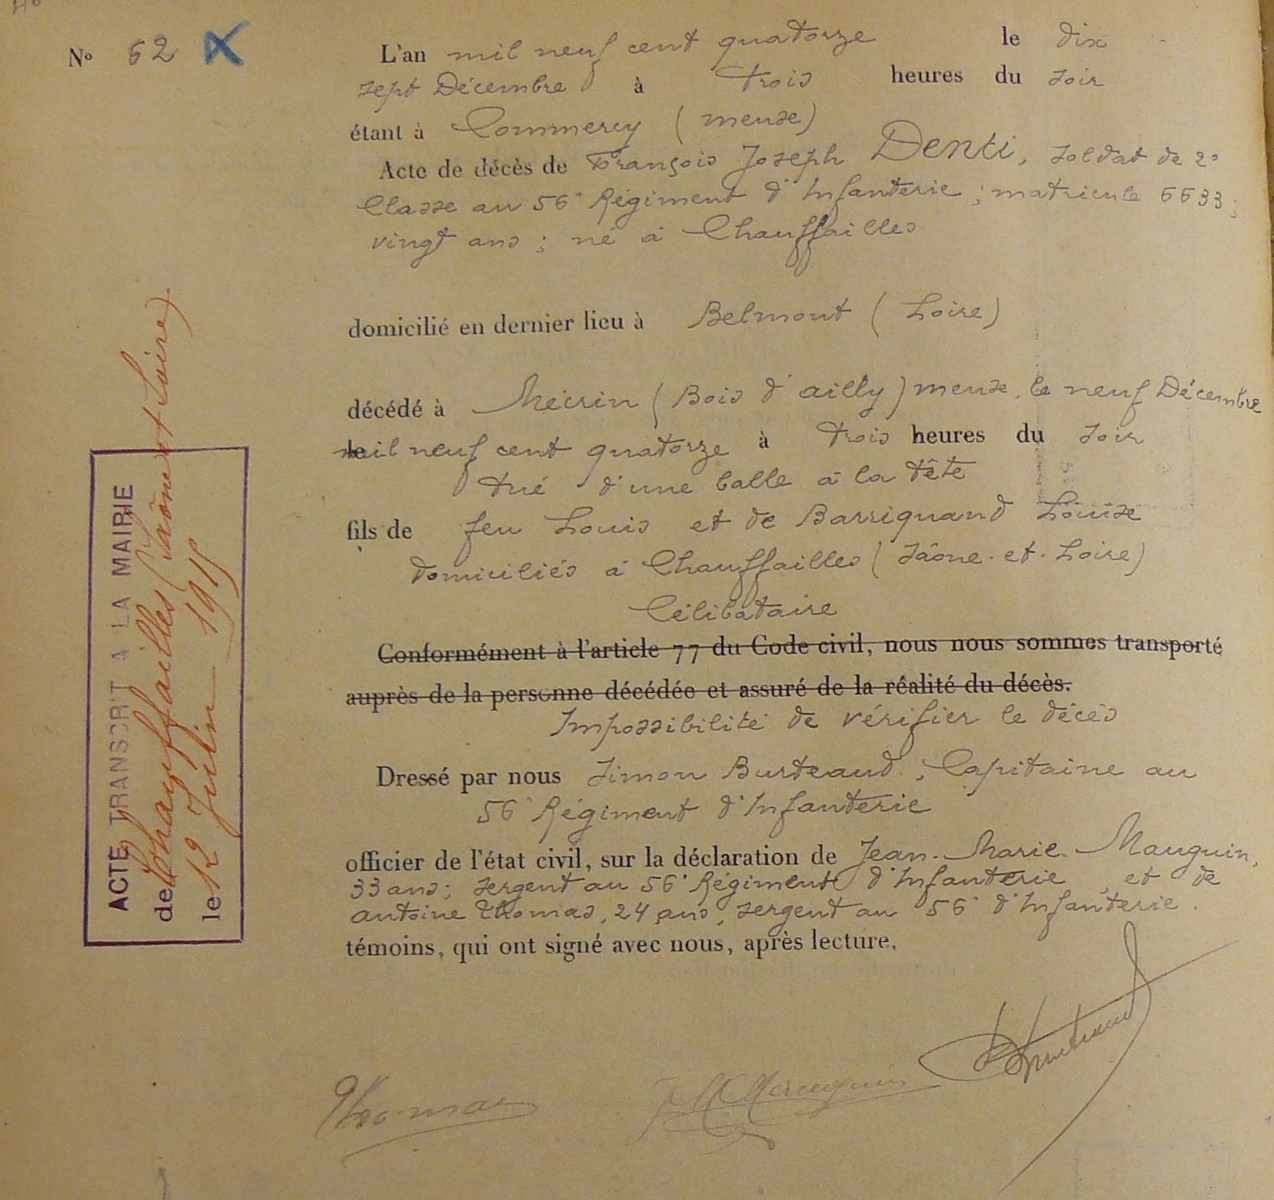 No 62
L'an mil neuf cent quatorze le dix
sept Décembre à trois heures du soir
étant à Commercy (meuse)
Acte de décès de François Joseph Denti, soldat de 2e
Classe au 56e Régiment d'Infanterie; matricule 6633;
vingt ans; né à Chauffailles
domicilié en dernier lieu à Belmont (Loire)
décédé à Mécrin (Bois d'ailly) meuse, le neuf Décembre
mil neuf cent quatorze à trois heures du soir
tué d'une balle à la tête
fils de feu Louis et de Barriquand Louise
domiciliés à Chauffailles (Saône-et-Loire)
Célibataire
Conformément à l'article 77 du Code civil, nous nous sommes transporté
auprès de la personne décédée et assuré de la réalité du décès.
Impossibilité de vérifier le décès
Dressé par nous Simon Burteaud, Capitaine au
56e Régiment d'Infanterie
officier de l'état civil, sur la déclaration de Jean-Marie Mauguin,
33 ans; sergent au 56e Régiment d'Infanterie, et de
antoine Thomas, 24 ans, sergent au 56e d'Infanterie.
témoins, qui ont signé avec nous, après lecture.
Thomas
JM Mauguin
Burteaud
ACTE TRANSCRIT À LA MAIRIE
de Chauffailles (Saône et Loire)
le 12 Juin 1915